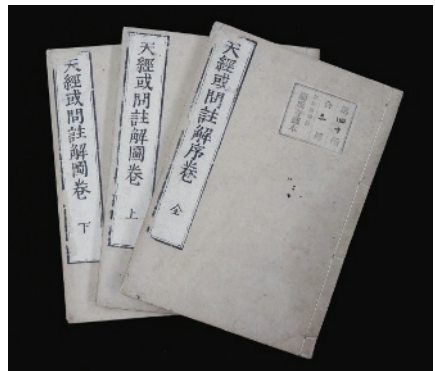 天經或問註解序卷 全
天經或問註解圖卷 上
天經或問註解圖卷 下